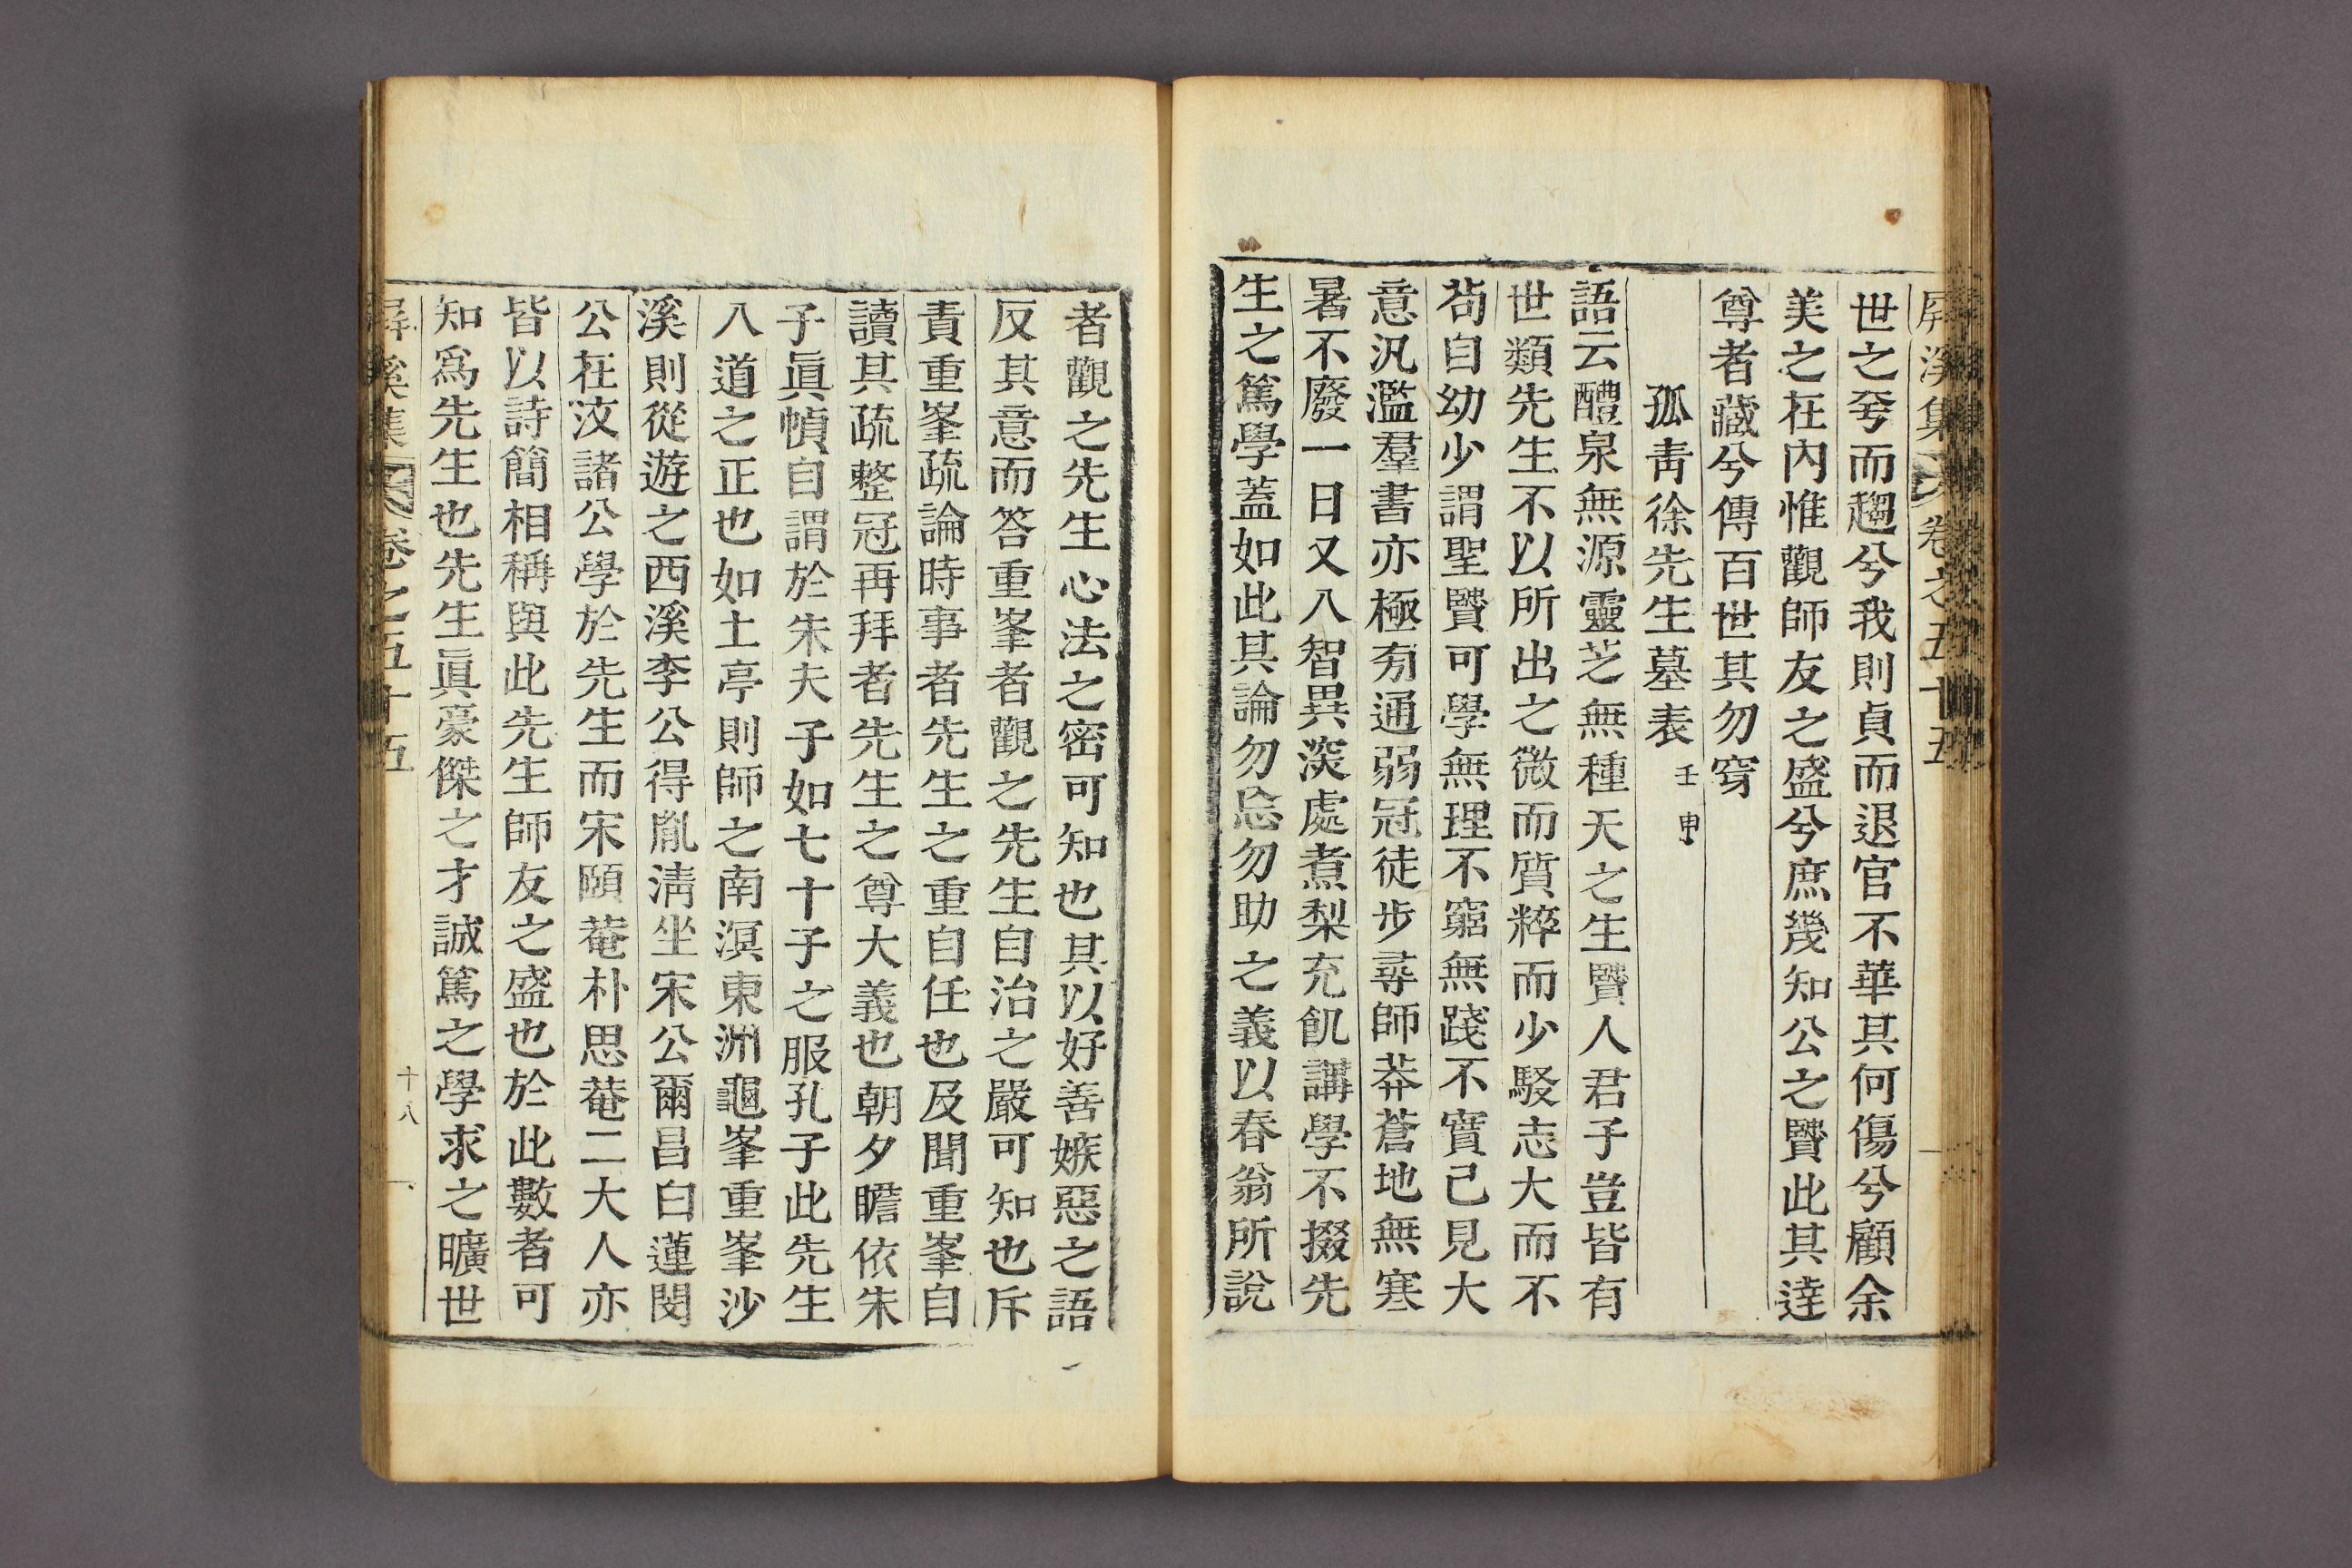 屛溪集 卷之五十五
世之兮而趨兮我則貞而退官不華其何傷兮顧余
美之在內惟觀師友之盛兮庶幾知公之賢此其達
尊者藏兮傳百世其勿穿
孤靑徐先生墓表 壬申
語云醴泉無源靈芝無種天之生賢人君子豈皆有
世類先生不以所出之微而質粹而少駁志大而不
苟自幼少謂聖賢可學無理不窮無踐不實己見大
意汎濫羣書亦極旁通弱冠徒步尋師莽蒼地無寒
暑不廢一日又入智異深處煮梨充飢講學不掇先
生之篤學蓋如此其論勿忘勿助之義以春翁所說
者觀之先生心法之密可知也其以好善嫉惡之語
反其意而答重峯者觀之先生自治之嚴可知也斥
責重峯疏論時事者先生之重自任也及聞重峯自
讀其疏整冠再拜者先生之尊大義也朝夕瞻依朱
子眞幀自謂於朱夫子如七十子之服孔子此先生
入道之正也如土亭則師之南溟東洲龜峯重峯沙
溪則從遊之西溪李公得胤淸坐宋公爾昌白蓮閔
公在汶諸公學於先生而宋頤菴朴思菴二大人亦
皆以詩簡相稱與此先生師友之盛也於此數者可
知爲先生也先生眞豪傑之才誠篤之學求之曠世
屛溪集 卷之五十五 十八